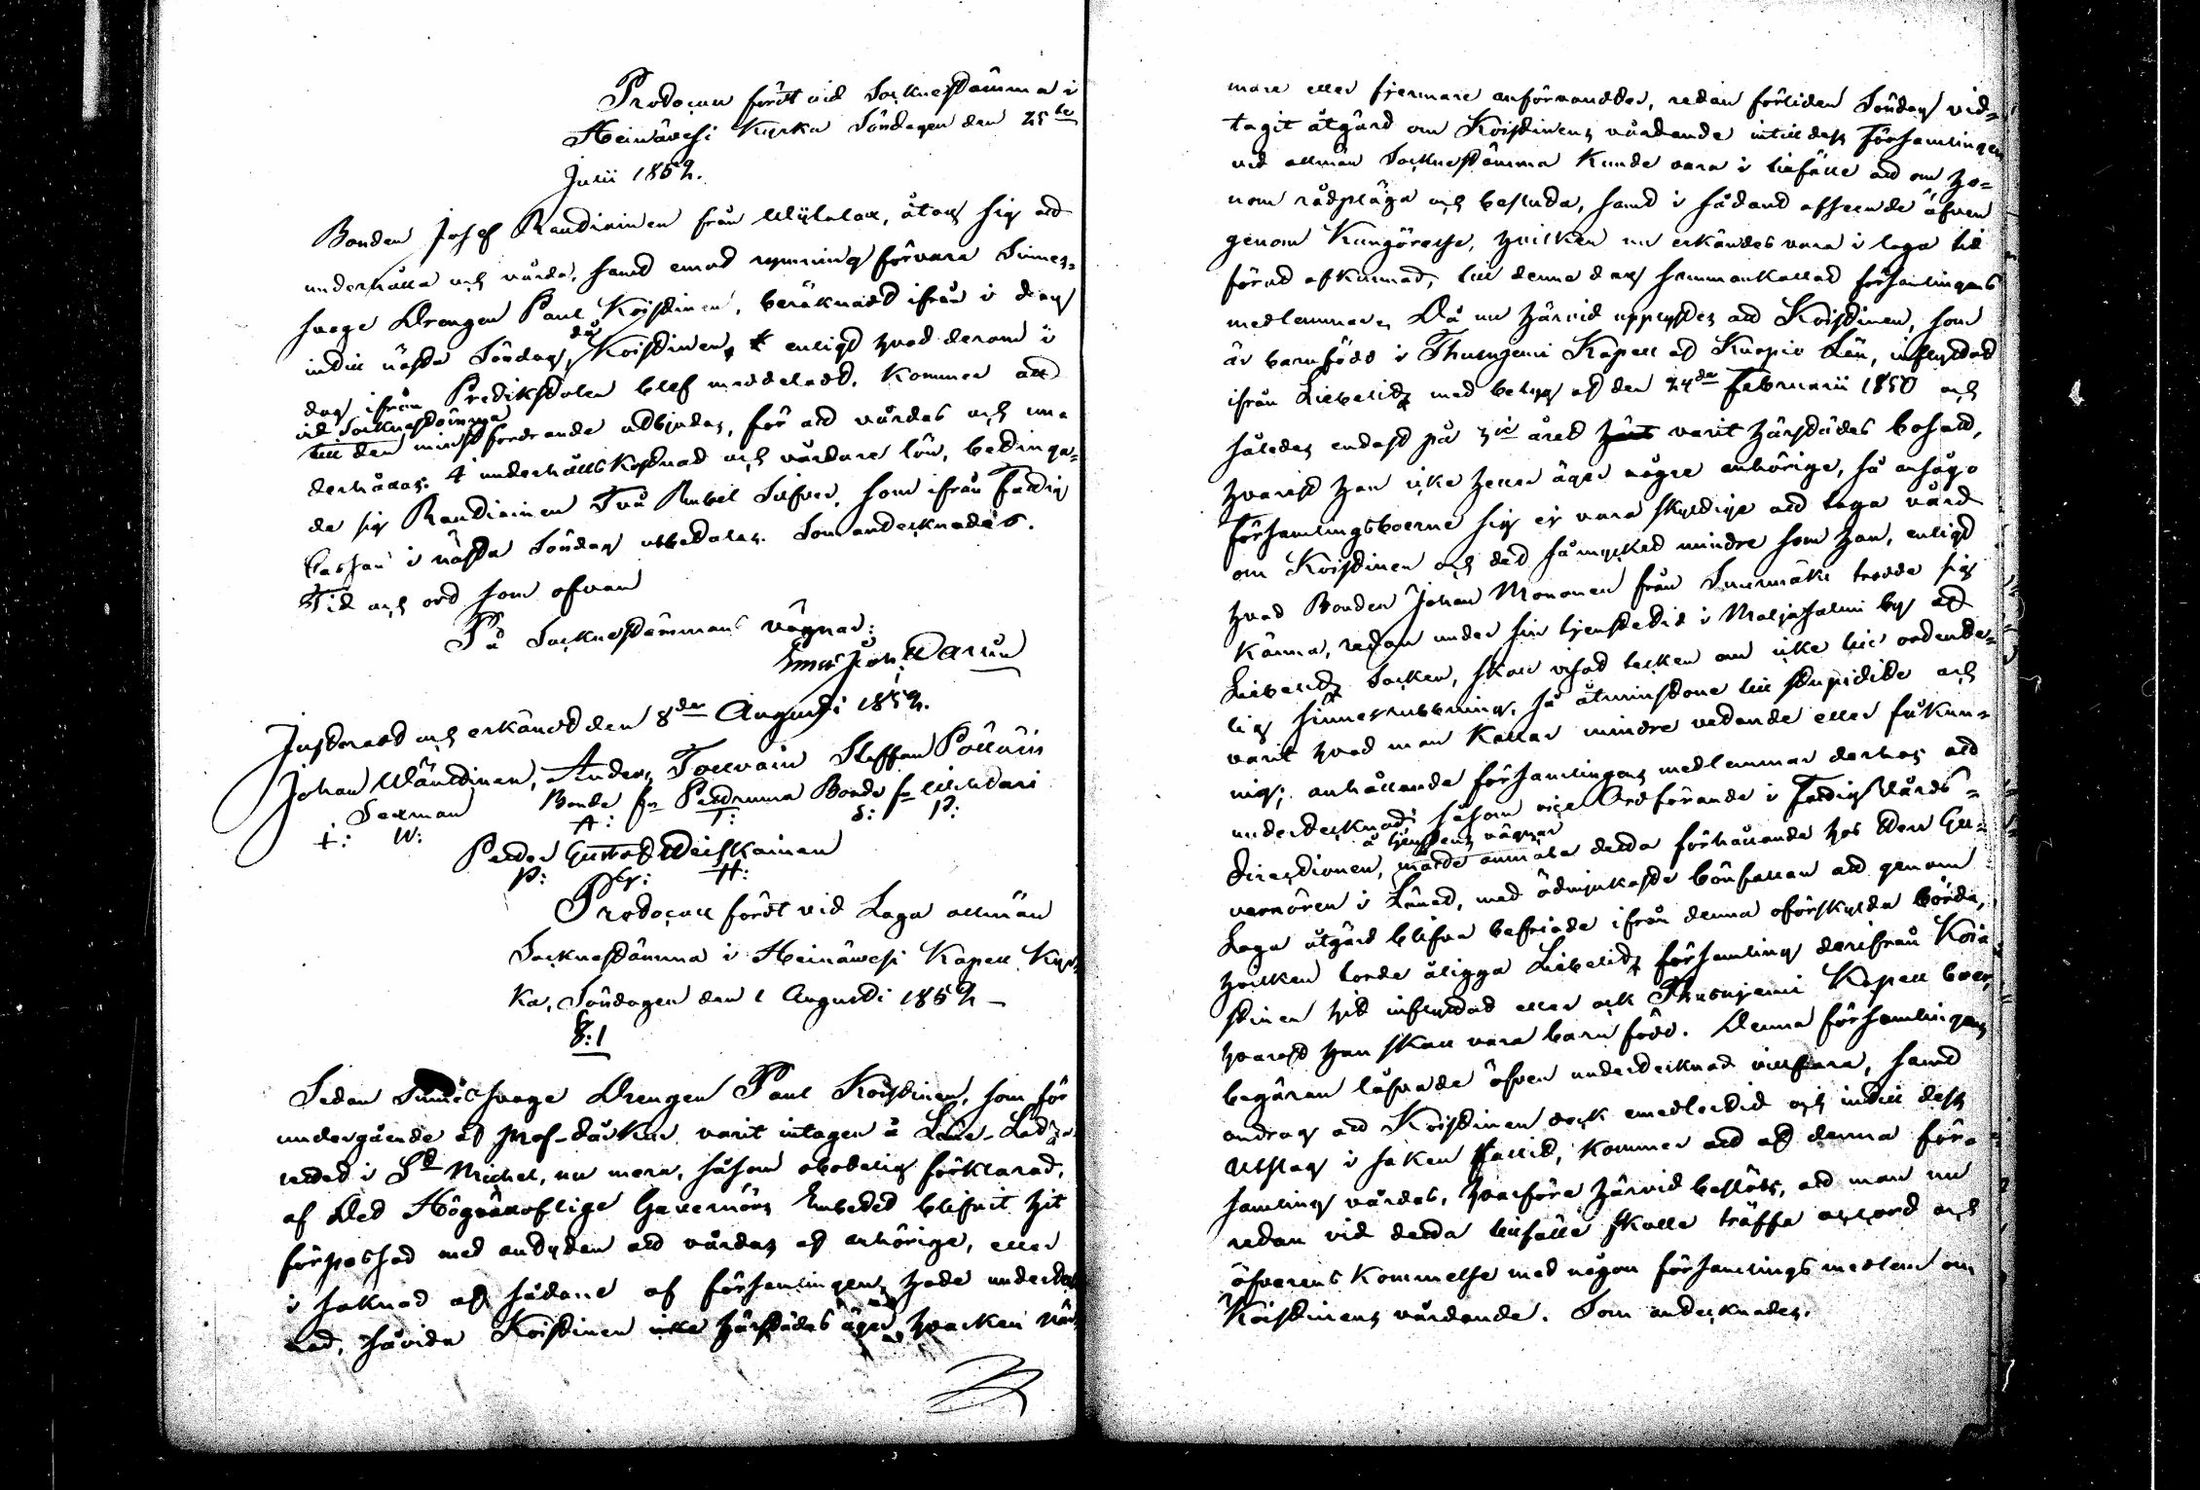 Protocoll fördt vid Socknestämma i
Heinävesi Kyrka Söndagen den 25te
Julii 1852.
Bonden Josef Raudininen från, åtog sig att
underhålla och vårda, samt emot rymning förvara Sinnes-
svage Drengen Paul Koistinen, beräknadt ifrån i dag
intill nästa Söndag, då Koistinen, enligt hvad derom i
dag ifrån Predikstolen blef meddeladt, kommer att
vid Socknestämma
till den minstfordrande utbjudas, för att vårdas och un-
derhållas. I underhållskostnad och vårdare lön, betinga-
de sig Raudininen Två Rubel Silfver, som ifrån Fattig
Cassan i nästa Söndag utbetalas. Som antecknades.
Tid och ort som ofvan
På Socknestämmans vägnar:
Joh:
Justeradt och erkändt den 8de Augusti 1852.
Johan Wänttinen, Anders Tolvain Staffan Pöllänen
Sexman Bonde fr Bonde fr
I: W: A: T: S: P:
Petter Gustaf Heiskainen
P: G: H:
Protocoll fördt vid Laga allmän
Socknestämma i Heinävesi Kapell Kyr-
ka, Söndagen den 1 Augusti 1852 –
§:1
Sedan Sinnessvage Drengen Paul Koistinen, som för
undergående af prof-dårkur varit intagen å Läne-Laza-
rettet i St Michel, nu mera, såsom obotelig förklarad,
af Det Högvälloflige Gouvernörs Embetet blifvit hit
förpassad med antyden att vårdas af anhörige, eller
i saknad af sådane af församlingen, hade underteck-
nad, såvida Koistinen icke härstädes äger hvarken när-
mare eller fjermare anförvandter, redan förliden Söndag vid-
tagit åtgärd om Koistinens vårdande intill dess Församlingen
vid allmän Socknestämma kunde vara i tillfälle att om ho-
nom rådpläga och besluta, samt i sådant afseende äfven
genom Kungörelse, hvilken nu erkändes vara i laga tid
förut afkunnad, till denna dag sammankallat församlingens
medlemmar. Då nu härvid upplystes att Koistinen, som
är barnfödd i Thusniemi Kapell af Kuopio Län, inflyttat
ifrån Libelits med betyg af den 24de Februarii 1850 och
således endast på 3ie året varit härstädes bosatt,
hvarest han icke heller äger några anhörige, så ansågo
Församlingsboerne sig ej vara skyldige att taga vård
om Koistinen och det så mycket mindre som han, enligt
hvad Bonden Johan Mononen från Summäki trodde sig
känna, redan under sin tjenstetid i Maljasalmi by af
Libelits Socken, skall visat tecken om icke till ordent-
lig sinnesrubbning, så åtminstone till stupiditet och
varit hvad man kallar mindre vetande eller fåkun-
nig; anhållande församlingens medlemmar derhos att
undertecknad såsom vice Ordförande i Fattigvårds-
å thessens vägnar
Directionen, måtte anmäla detta förhållande hos Herr Gu-
vernören i Länet, med ödmjukaste bönfallan att genom
Laga åtgärd blifva befriade ifrån denna oförskylda börda,
hvilken torde åligga Libelits församling derifrån Koi-
stinen hit inflyttat eller ock Thusniemi Kapell boer,
hvarest han skall vara barn född. Denna församlingens
begäran lofvade äfven undertecknad villfara, samt
androg att Koistinen dock emedlertid och intill dess
Utslag i saken fallit, kommer att af denna för-
samling vårdas, hvarföre härvid beslöts, att man nu
redan vid detta tillfälle skulle träffa accord och
öfverenskommelse med någon församlings medlem om
Koistinens vårdande. Som antecknades.